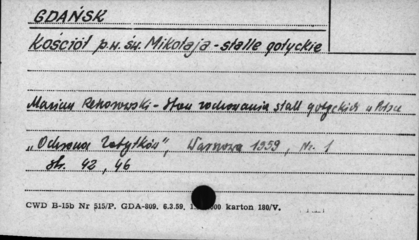 GDAŃSK
Kościół p.w. św. Mikołaja - stalle gotyckie
Marian Rehorowski - Stan zachowania stall gotyckich w Polsce
"Ochrona Zabytków", Warszawa 1959, Nr. 1
str. 42, 46
CWD B-15b Nr 515/P. GDA-809. 6.3.59, 000 karton 180/V.